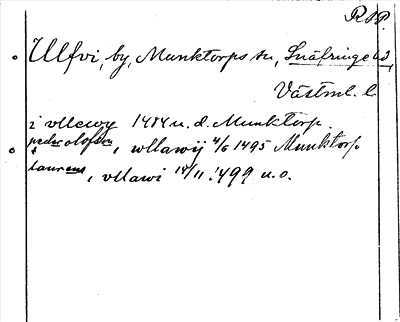 RAP.
Ulfvi, by, Munktorps sn, Snäfringe hd,
Västml. l.
i vllewy 1484 u. d. Munktorp
peder olofson, wllawij 4/6 1495 Munktorp
laurens, vllawi 14/11 1499 u. o.